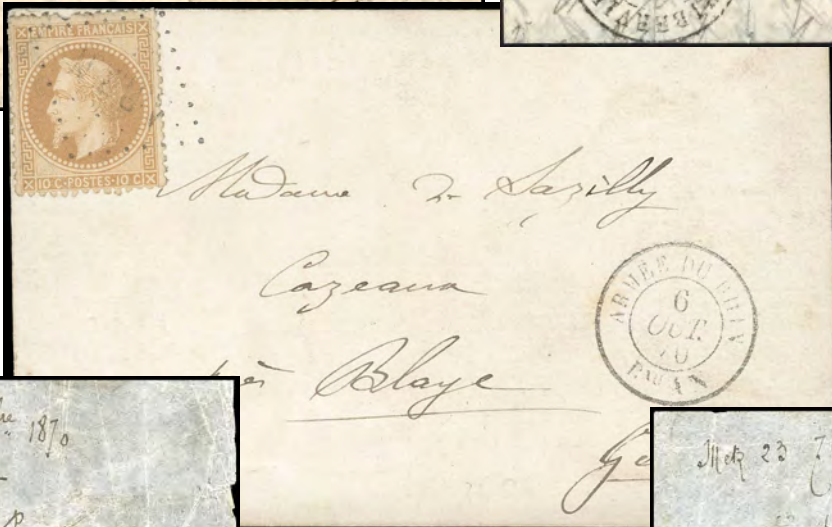 EMPIRE FRANÇAIS
10 C·POSTES·10 C
Madame de Sazilly
Cazeaux
près Blaye
ARMÉE DU RHIN
6
OCT.
70
Bau
1870
Metz 23